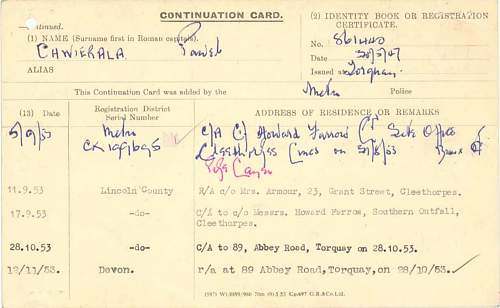 CONTINUATION CARD.
(2) IDENTITY BOOK OR REGISTRATION CERTIFICATE.
(1) NAME (Surname first in Roman capitals).
CAWIERALA Pawel
ALIAS
No. 861440
Date 30/5/47
Issued at Torquay.
This Continuation Card was added by the Metro Police
(13) Date
Registration District
Serial Number
ADDRESS OF RESIDENCE OR REMARKS
5/9/53 Metro C/A C/o Howard Farrow Site Office
Cleethorpes Lincs on
11.9.53 Lincoln County R/A c/o Mrs. Armour, 23, Grant Street, Cleethorpes.
17.9.53 -do- C/A to c/o Messrs. Howard Farrow, Southern Outfall,
Cleethorpes.
28.10.53 -do- C/A to 89, Abbey Road, Torquay on 28.10.53.
12/11/53. Devon. r/a at 89 Abbey Road,Torquay,on 28/10/53.